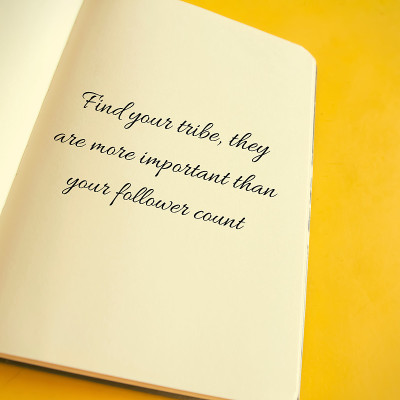 Find your tribe, they
are more important than
your follower count